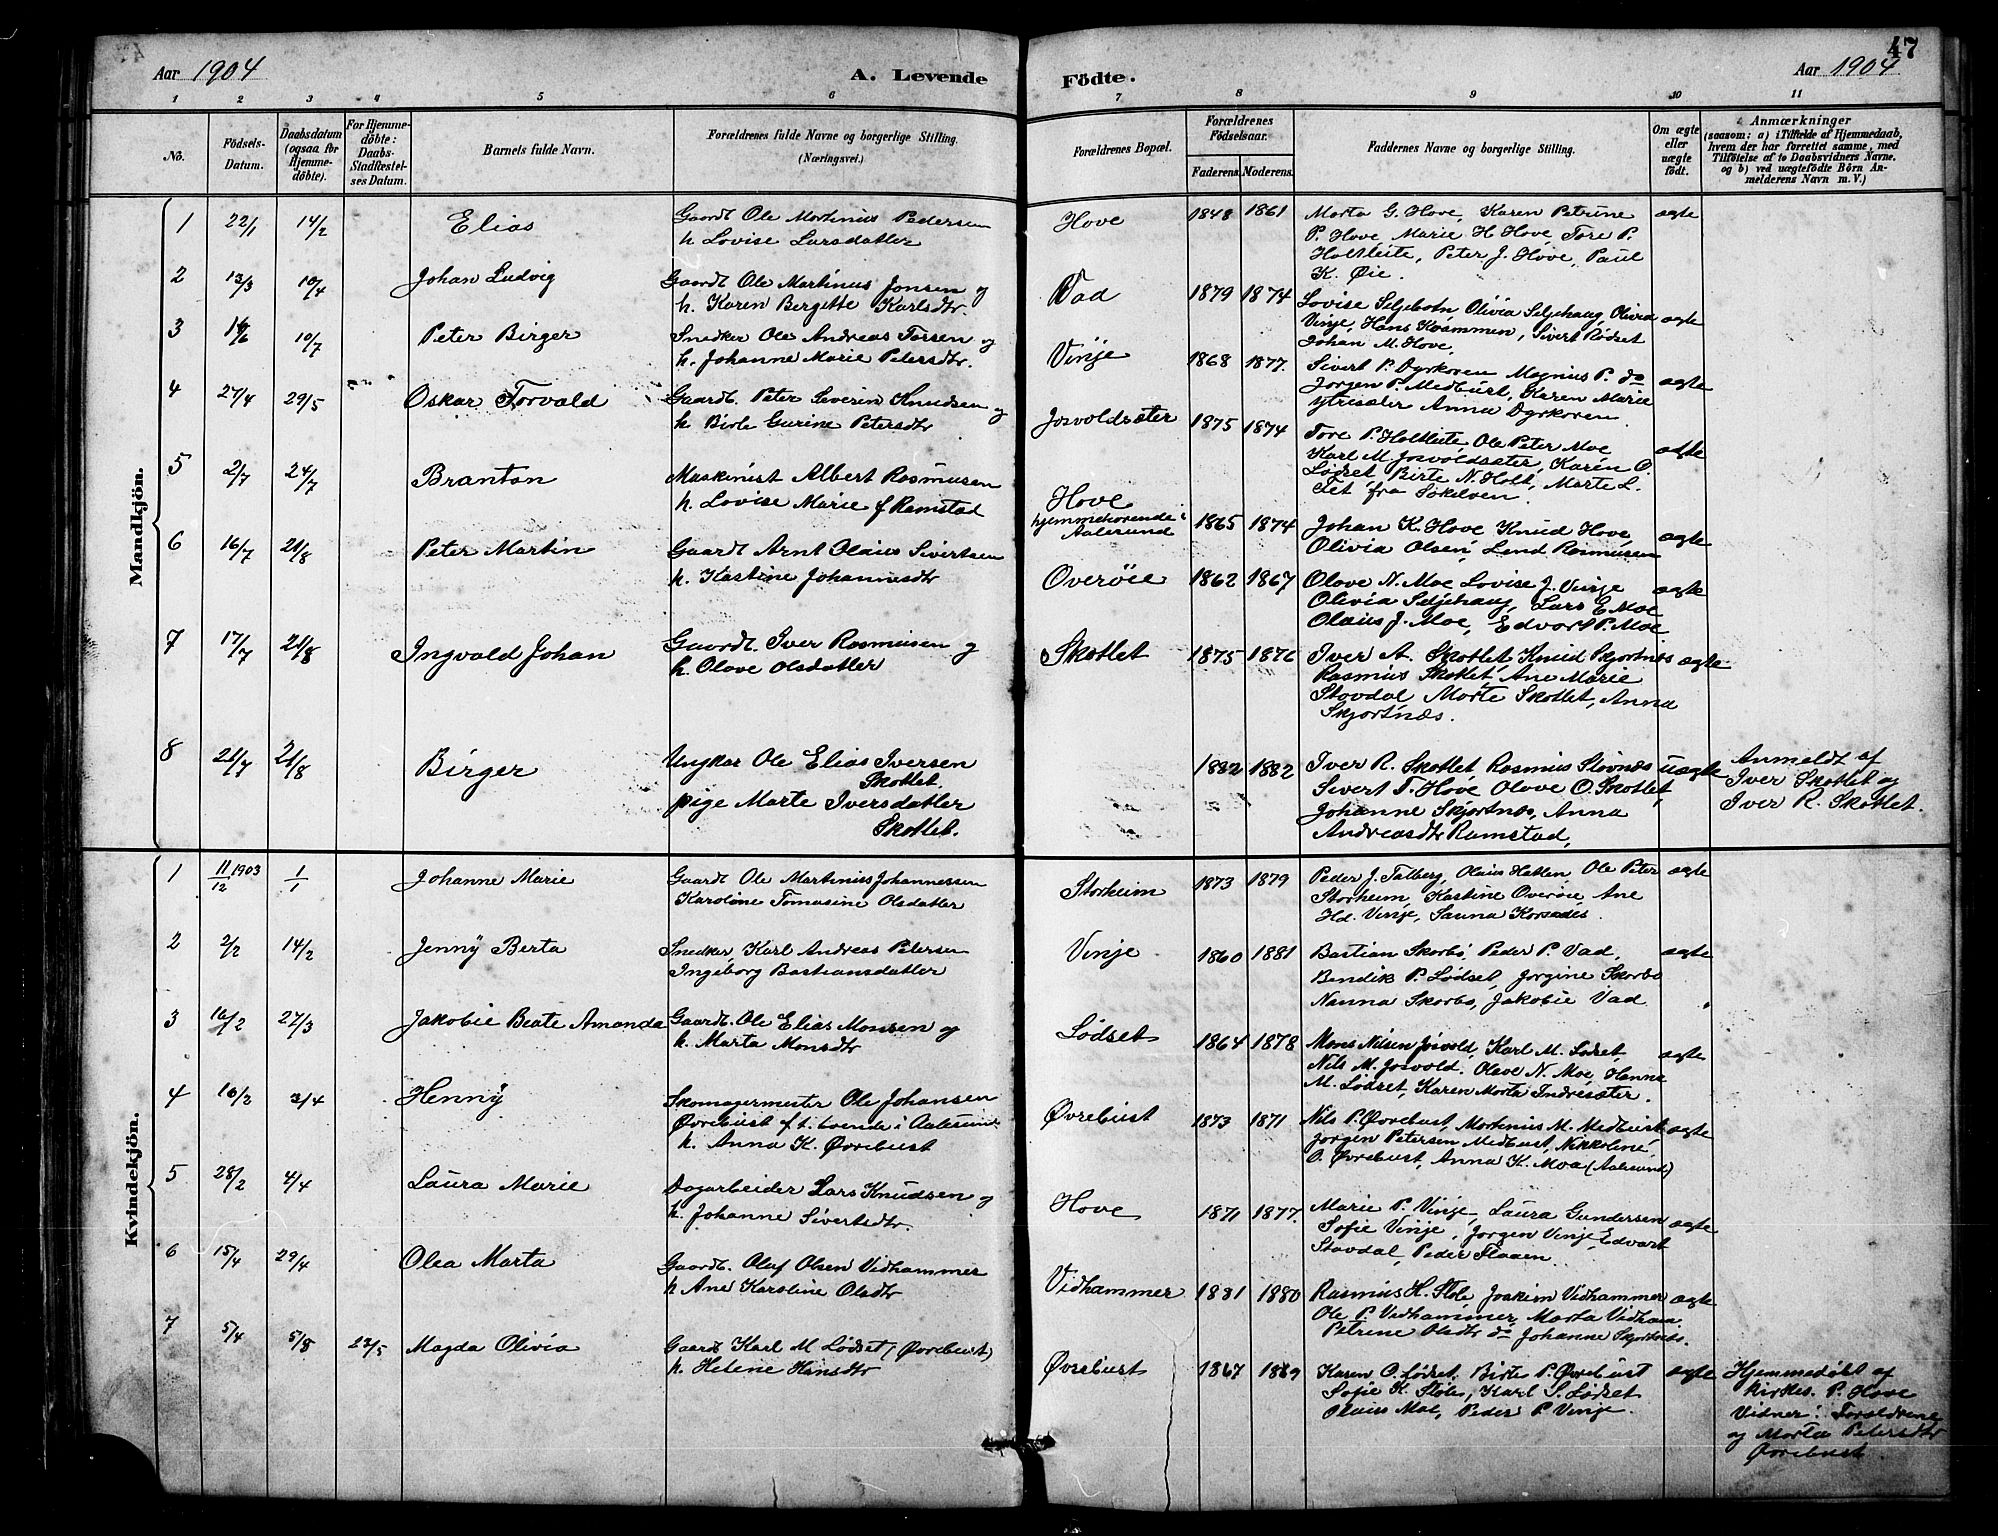 47
Aar 1904
A. Levende Födte.
Aar 1904
1 2 3 4 5 6 7 8 9 10 11
No.
Födsels-Datum.
Daabsdatum (ogsaa for Hjemme-döbte).
For Hjemme-döbte: Daabs-Stadfæstel-ses Datum.
Barnets fulde Navn.
Forældrenes fulde Navne og borgerlige Stilling.
(Næringsvei.)
Forældrenes Bopæl.
Forældrenes Födselsaar.
Faderens. Moderens.
Faddernes Navne og borgerlige Stilling.
Om ægte eller uægte födt.
Anmærkninger
(saasom: a) i Tilfælde af Hjemmedaab,
hvem der har forrettet samme, med
Tilföielse af to Daabsvidners Navne.
og b) ved uægtefödte Börn An-
melderens Navn m. V.)
Mandkjön.
1 22/1 14/2 Elias
Gaardt Ole Martinus Pedersen
h Lovise Larsdatter
Hove 1848 1861
Marta G. Hove, Karen Petrine
P. Hove Marie H Hove, Tore P.
Holtleite, Peter J. Hove, Paul
K. Øie.
ægte
2 13/3 10/4 Johan Ludvig
Gaardt Ole Martinus Jonsen og
h. Karen Bergitte Karlsdtr.
Vad 1879 1874
Lovise Seljebotn Olivia Seljehaug Olivia
Vinje, Hans Krammen, Sivert Rödset
Johan M. Hove,
ægte
3 10/7 Peter Birger
Snedker Ole Andreas Tossen og
h. Johanne Marie Petersdtr.
Vinje 1868 1877.
Sivert P. Dyrkoren Magnus P. do
Jorgen P. Medbust, Karen Marie
ytresæter Anna Dyrkoren
ægte
4 27/4 29/5 Oskar Torvald
Gaardt. Peter Severin Knudsen og
h Birte Gurine Petersdtr
Josvoldsæter 1875 1874
Tore P. Holtleite, Ole Peter Moe
Karl M. Josvoldsæter, Karen O.
Lødset Birte N. Holt, Marte L.
Tet fra Søkelven
ægte
5 2/7 24/7 Brantan
Maskinist Albert Rasmusen
h. Lovise Marie f Ramstad
Hove
hjemmehorende i
Aalesund
1865 1874
Johan K. Hove Knud Hove,
Olivia Olsen, Lend Rasmusen
ægte
6 16/7 21/8 Peter Martin
Gaardt Arnt Olaus Sivertsen
h. Kastine Johannesdtr
Overøie 1862 1867
Olave N. Moe Lovise J. Vinje
Olivia Seljehaug, Lars E. Moe
Olaus J. Moe, Edvart P. Moe
ægte
7 17/7 21/8 Ingvald Johan
Gaardt. Iver Rasmusen og
h. Olave Olsdatter
Skotlet 1875 1876
Iver A. Skotlet Knud Skjortnes
Rasmus Skotlet, Ane Marie
Stavdal Marte Skotlet, Anna
Skjortnæs.
ægte
8 21/7 21/8 Birger
Ungkar Ole Elias Iversen
Skotlet.
pige Marte Iversdatter
Skotlet.
1882 1882
Iver R. Skotlet Rasmus Stavnæs
Sivert T. Hove Olave O. Skotlet,
Johanne Skjortnæs, Anna
Andreasdtr Ramstad,
uægte
Anmeldt af
Iver Skotlet og
Iver R. Skotlet.
Kvindekjön.
1 11/12 1903 1/1 Johanne Marie
Gaardt Ole Martinus Johannessen
Karoline Tomasine Olsdatter
Storheim 1873 1879
Peder J. Talberg, Olaus Hetlen Ole Peter
Storheim, Kastine Overøie Ane
Hd. Vinje,
ægte
2 2/2 14/2 Jenny Berta
Snedker, Karl Andreas Petersen
Ingeborg Bastiansdatter
Vinje 1860 1881
Bastian Skorbø, Peder P. Vad,
Bendik P. Lødset, Jorgine Skorbø
Nanna Skorbø, Jakobie Vad
ægte
3 16/2 27/3 Jakobie Beate Amanda
Gaardt. Ole Elias Monsen og
h. Marta Monsdtr
Lødset 1864 1878
Mons Nilsen Josvold, Karl M. Lødset,
Nils M. Josvold. Olave N. Moe, Hanna
M. Lødset, Karen Marta Indresæter.
ægte
4 16/2 3/4 Henny
Skomagermester Ole Johansen
Øvrebust f. t. boende i Aalesund
h. Anna K. Øvrebust
Øvrebust 1873 1871
Nils P. Øvrebust, Martinus M. Medbust
Jorgen Petersen Medbust, Nikkoline
O. Øvrebust, Anna K. Moa (Aalesund)
ægte
5 28/2 4/4 Laura Marie
Dagarbeider Lars Knudsen og
h. Johanne Sivertsdtr.
Hove 1871 1877.
Marie P. Vinje, Laura Gundersen
Sofie Vinje, Jorgen Vinje, Edvart
Stavdal, Peder Flaaen
ægte
6 15/4 29/4 Olea Marta
Gaardt. Olaf Olsen Vidhammer
h Ane Karoline Olsdtr
Vidhammer 1881 1880
Rasmus K. Støle Joakim Vidhammer
Ole P. Vidhammer, Marta Vidham
Petrine Olsdtr do Johanne Skjortnæs.
ægte
7 5/4 5/8 23/5 Magda Olivia
Gaardt Karl M Lødset (Øvrebust)
h. Helene Hansdtr
Øvrebust 1867 1869
Karen O. Lødset. Birte P. Øvrebust
Sofie K. Støle, Karl S. Lødset
Olaus Moe, Peder P. Vinje.
ægte
Hjemmedøbt af
kirkes. P. Hove
Vidner: Forældrene
og Marta Petersdtr
Øvrebust